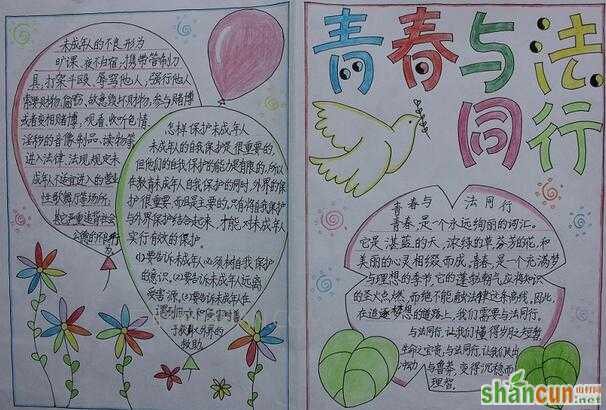 未成年人的不良形为
旷课、夜不归宿、携带管制刀
具,打架斗殴、辱骂他人,强行他人
索要财物,偷窃、故意毁坏财物,参与赌博
或者变相赌博,观看、收听色情、
淫秽的音像制品、读物等
进入法律、法规规定未
成年人不适宜进入的营业
性歌舞厅等场所、
其它严重违背社会
公德的不良行为
怎样保护未成年人
未成年人的自我保护是很重要的,
但他们的自我保护的能力是有限的,所以
在教育未成年自我保护的同时,外界的保
护很重要,而且是主要的,只有将自我保护
与外界保护结合起来,才能对未成年人
实行有效的保护。
(1)要告诉未成年人必须树自我保护
的意识,(2)要告诉未成年人远离
侵害源,(3)要告诉未成年人在
于获取外界的
救助
青春与法
同行
青春与法同行
青春,是一个永远绚丽的词汇。
它是湛蓝的天,浓绿的草芬芳的花和
美丽的心灵相缀而成。青春,是一个充满梦
与理想的季节,它的蓬勃朝气应将知识
的圣火点燃,而绝不能触法律这条高线,因此,
在追逐梦想的道路上,我们需要与法同行,
与法同行,让我们懂得岁月短暂,
生命之宝贵,与法同行,让我们从
冲动与鲁莽,变得沉稳而
理智。
shancun
山村网
.net